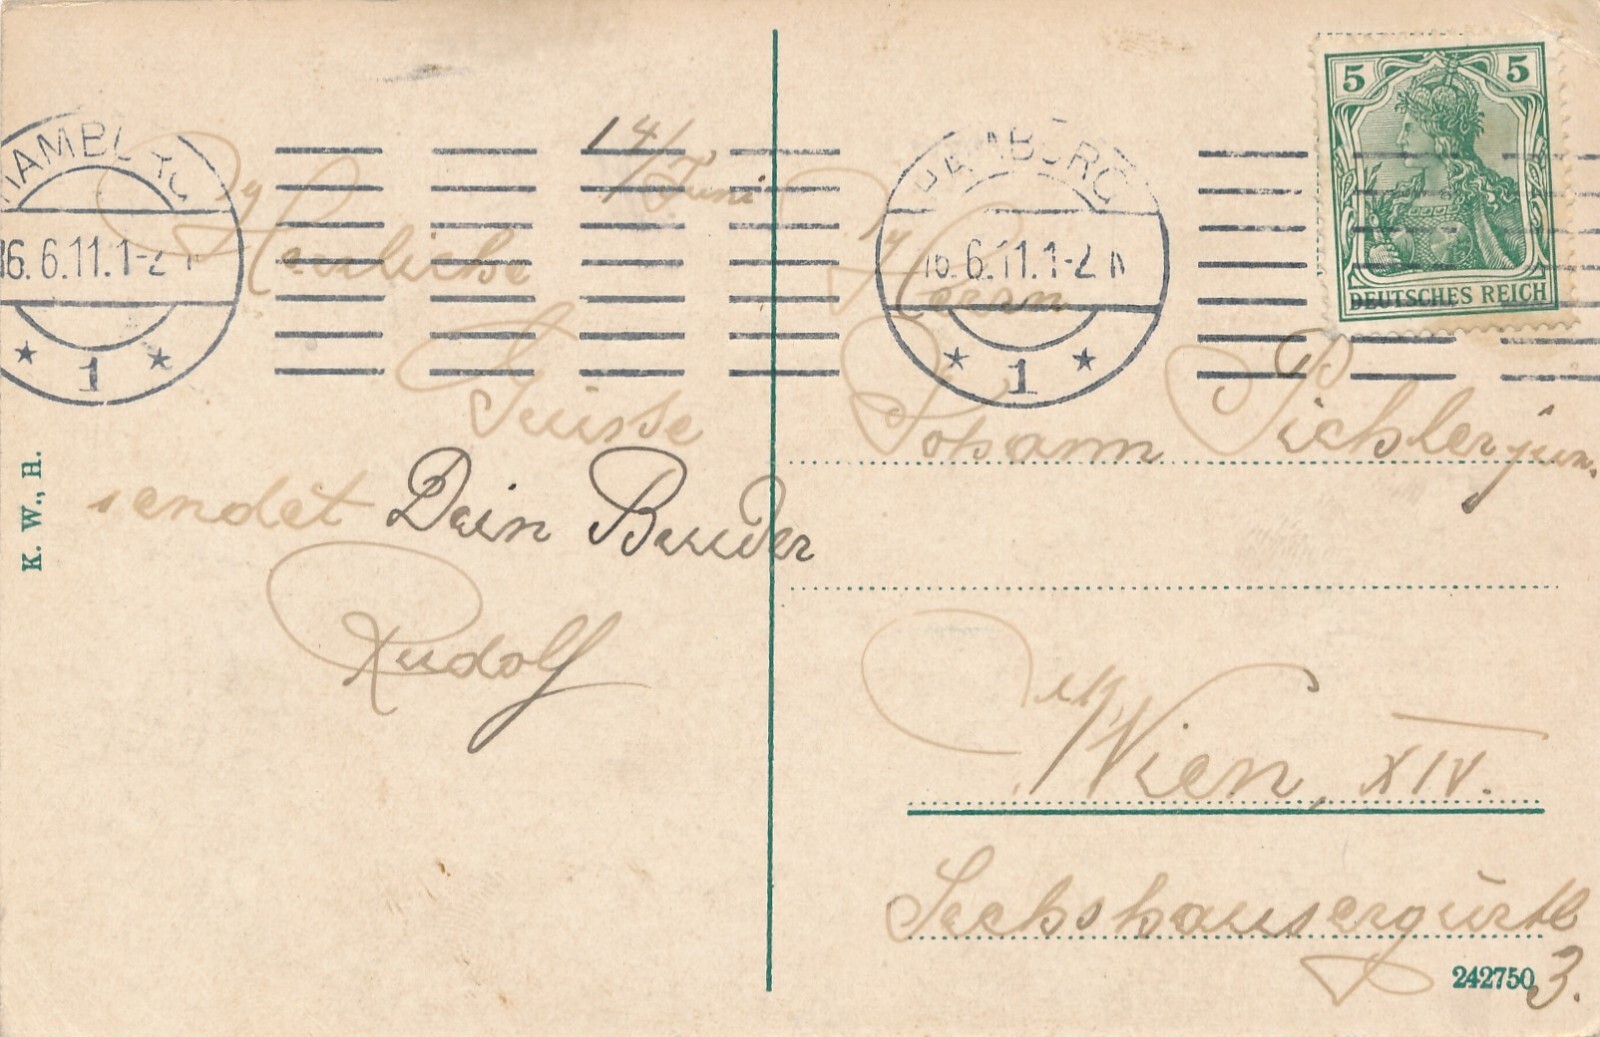 HAMBURG
16.6.11.1-2 N
* 1 *
14/ Juni
Herzliche
Grüsse
sendet Dein Bruder
Rudolf
K. W., H.
HAMBURG
16.6.11.1-2 N
* 1 *
5 5
DEUTSCHES REICH
Herrn
Johann Pichler jun.
Wien, XIV.
Sechshausergürtl
3.
242750